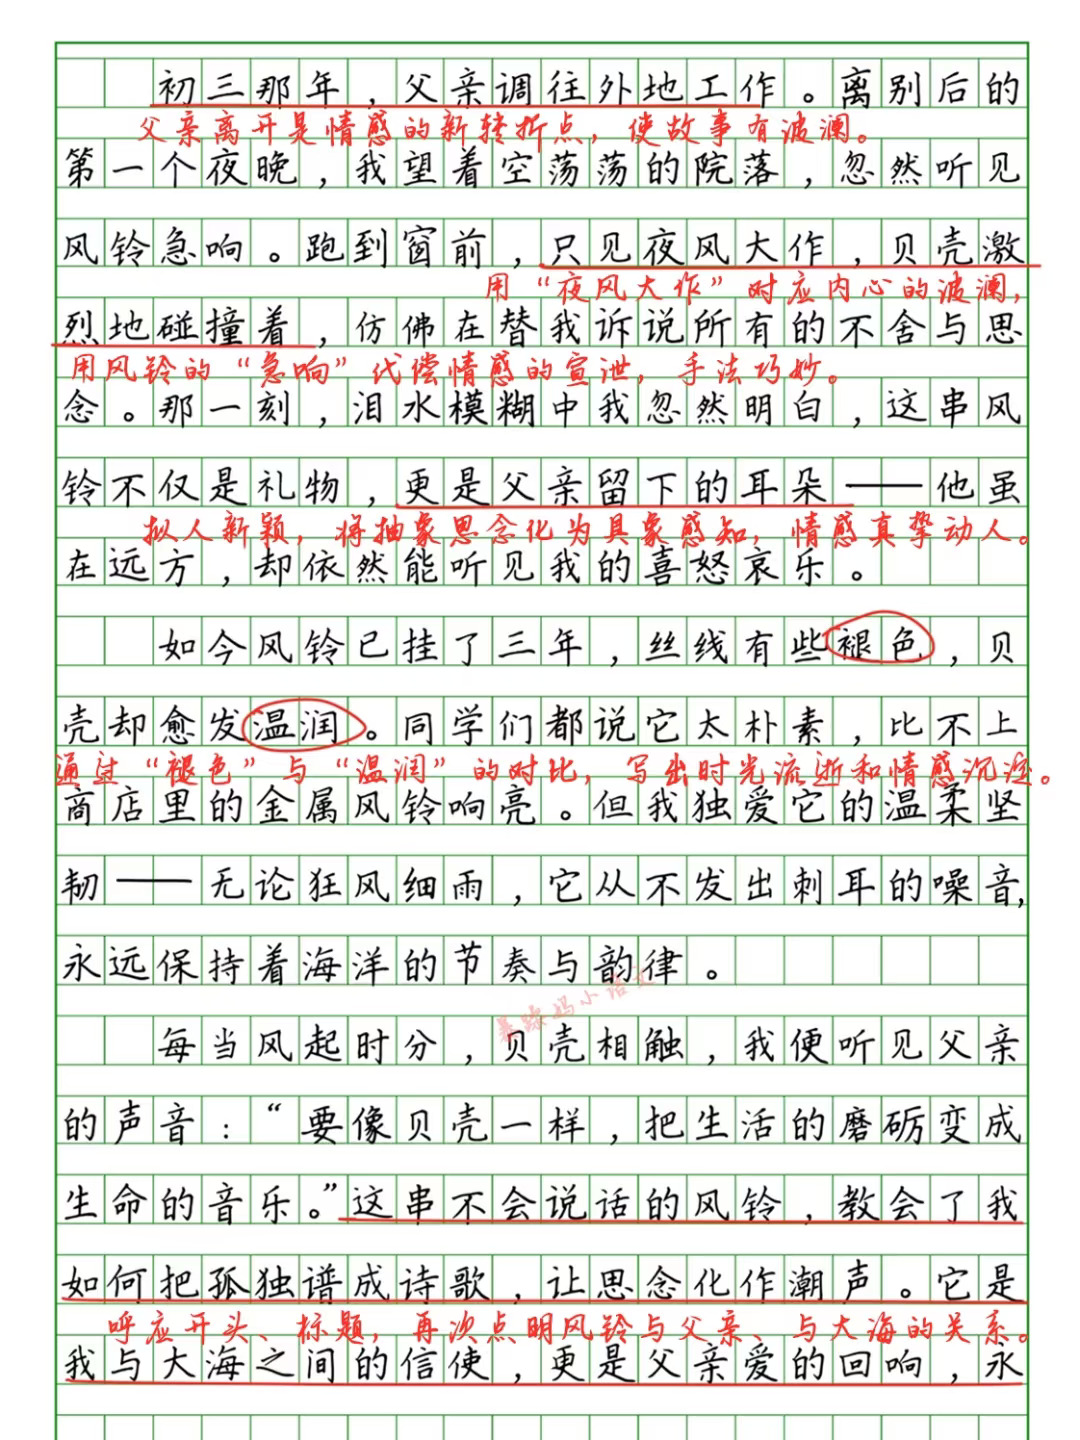 初三那年，父亲调往外地工作。离别后的
父亲离开是情感的新转折点，使故事有波澜。
第一个夜晚，我望着空荡荡的院落，忽然听见
风铃急响。跑到窗前，只见夜风大作，贝壳激
用“夜风大作”对应内心的波澜，
烈地碰撞着，仿佛在替我诉说所有的不舍与思
用风铃的“急响”代偿情感的宣泄，手法巧妙。
念。那一刻，泪水模糊中我忽然明白，这串风
铃不仅是礼物，更是父亲留下的耳朵——他虽
拟人新颖，将抽象思念化为具象感知，情感真挚动人。
在远方，却依然能听见我的喜怒哀乐。
如今风铃已挂了三年，丝线有些褪色，贝
壳却愈发温润。同学们都说它太朴素，比不上
通过“褪色”与“温润”的对比，写出时光流逝和情感沉淀。
商店里的金属风铃响亮。但我独爱它的温柔坚
韧——无论狂风细雨，它从不发出刺耳的噪音，
永远保持着海洋的节奏与韵律。
暴躁妈小语文
每当风起时分，贝壳相触，我便听见父亲
的声音：“要像贝壳一样，把生活的磨砺变成
生命的音乐。”这串不会说话的风铃，教会了我
如何把孤独谱成诗歌，让思念化作潮声。它是
呼应开头、标题，再次点明风铃与父亲、与大海的关系。
我与大海之间的信使，更是父亲爱的回响，永